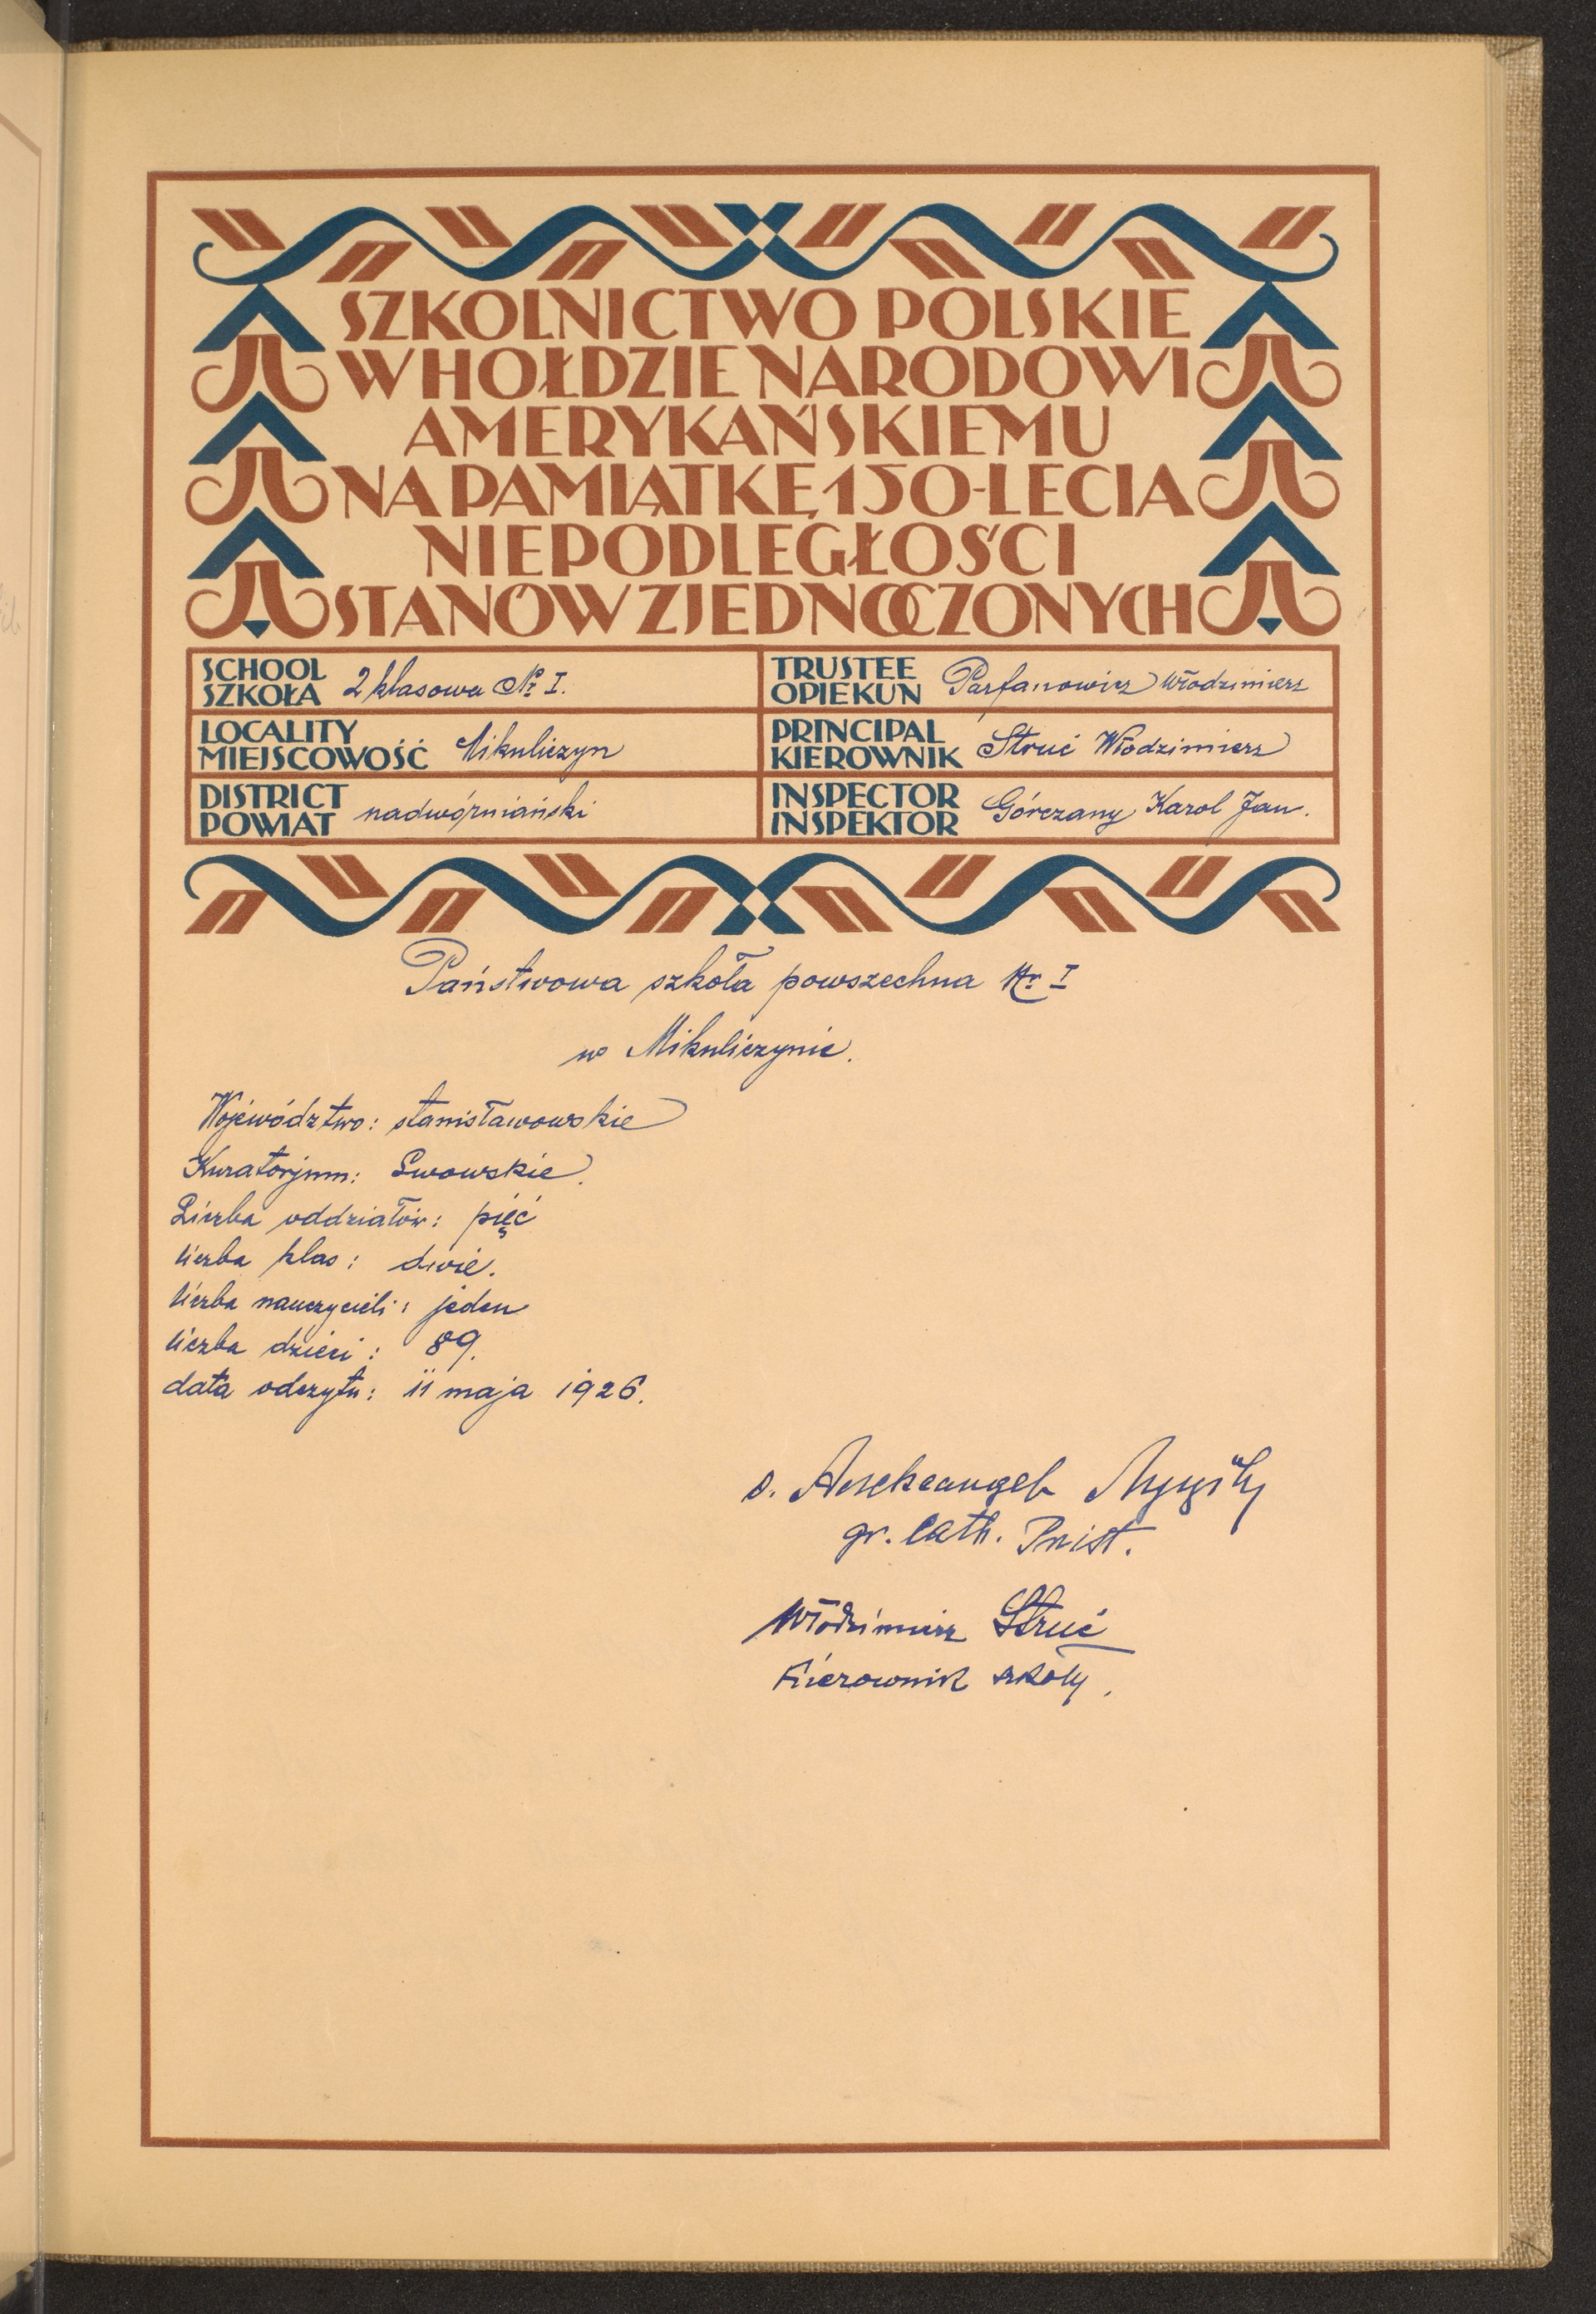 SZKOLNICTWO POLSKIE
W HOŁDZIE NARODOWI
AMERYKAŃSKIEMU
NA PAMIĄTKĘ 150-LECIA
NIEPODLEGŁOŚCI
STANÓW ZJEDNOCZONYCH
SCHOOL
SZKOŁA 2 klasowa № I.
TRUSTEE
OPIEKUN Parfanowicz Włodzimierz
LOCALITY
MIEJSCOWOŚĆ Mikuliczyn
PRINCIPAL
KIEROWNIK Struć Włodzimierz
DISTRICT
POWIAT nadwórniański
INSPECTOR
INSPEKTOR Górczany Karol Jan.
Państwowa szkoła powszechna Nr I
w Mikuliczynie.
Województwo: stanisławowskie
Kuratorjum: Lwowskie.
Liczba oddziałów: pięć
liczba klas: dwie.
liczba nauczycieli: jeden
liczba dzieci: 89.
data odczytu: 11 maja 1926.
o.
gr. cath. Prist.
Włodzimierz Struć
Kierownik szkoły.